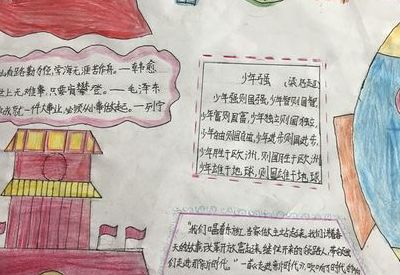 山有路勤为径,学海无涯苦作舟。——韩愈
世上无难事,只要肯登攀。——毛泽东
成就一件大事业,必须从小事做起。——列宁
少年强 (梁启超)
少年强则国强,少年智则国智,
少年富则国富,少年独立则国独立,
少年自由则国自由,少年进步则国进步,
少年胜于欧洲,则国胜于欧洲,
少年雄于地球,则国雄于地球
"我们唱着东方红,当家做主站起来,我们讲着春
天的故事改革开放富起来,继往开来的领路人,带领我
们走进那新时代。"——《走进新时代》